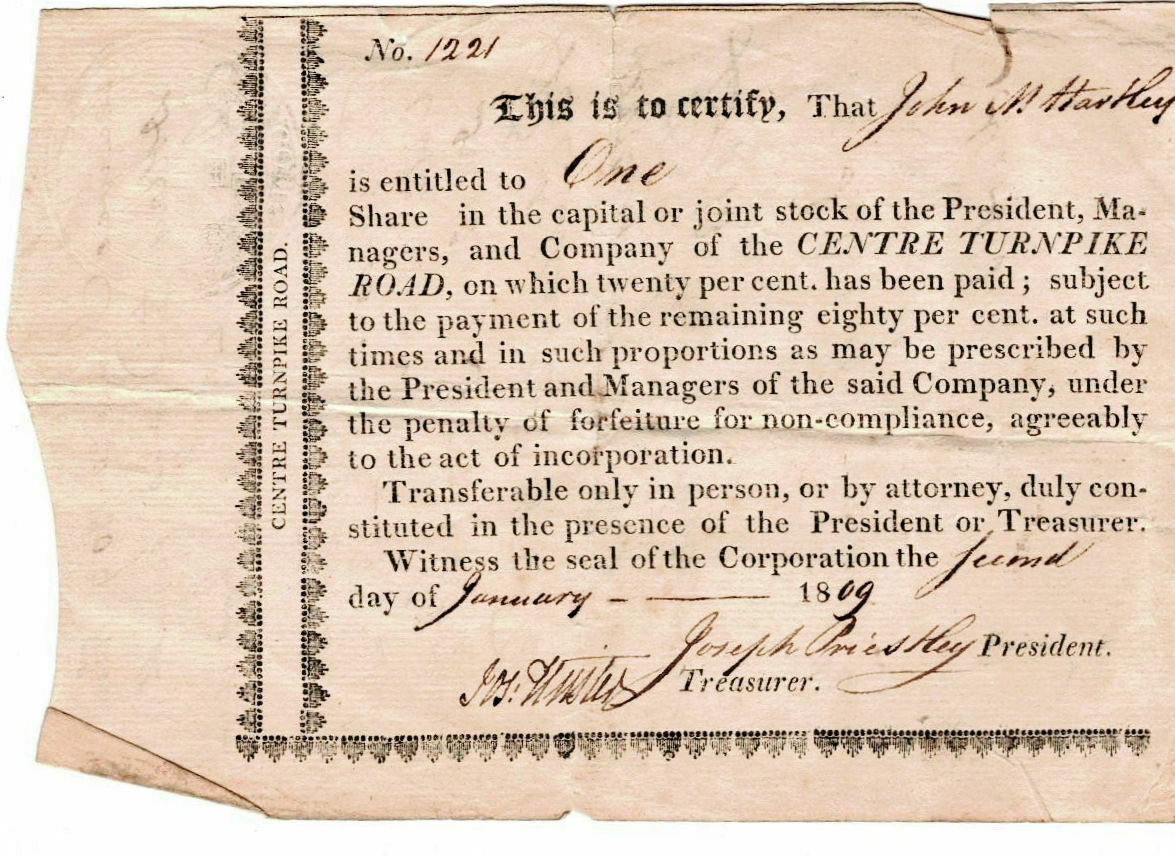 No. 1221
This is to certify, That John M. Hartley
is entitled to One
Share in the capital or joint stock of the President, Ma-
nagers, and Company of the CENTRE TURNPIKE
ROAD, on which twenty per cent. has been paid; subject
to the payment of the remaining eighty per cent. at such
times and in such proportions as may be prescribed by
the President and Managers of the said Company, under
the penalty of forfeiture for non-compliance, agreeably
to the act of incorporation.
Transferable only in person, or by attorney, duly con-
stituted in the presence of the President or Treasurer.
Witness the seal of the Corporation the second
day of January - — 1809
Joseph Priestley President.
Jos: Treasurer.
CENTRE TURNPIKE ROAD.